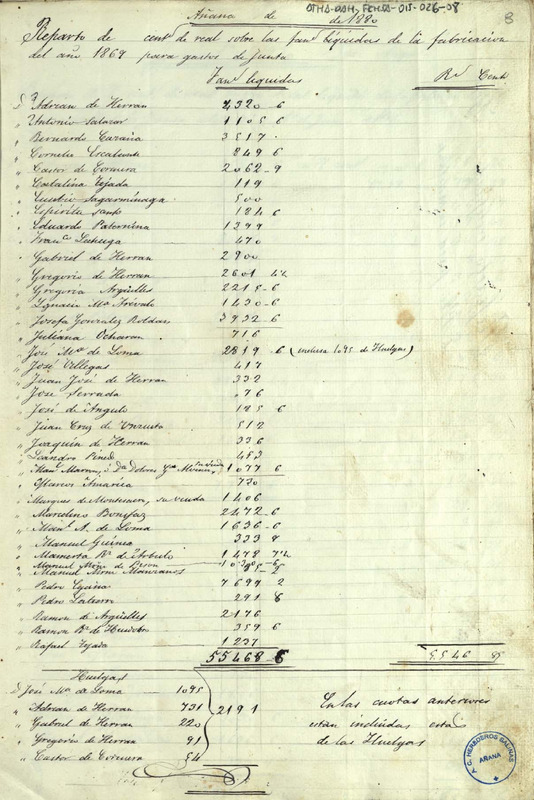 OTHA-DAH, FCHSA-015-026-08
8
Añana de de 1880
Reparto de cent.s de real sobre las fan.s líquidas de la fabricación
del año 1869 para gastos de Junta
Fan.s líquidas R.s Cents
D.n Adrian de Herran 4320 6
" Antonio Salazar 1105 6
" Bernardo 3517
" Cornelio Escalante 849 6
" Castor de Corcuera 2062 9
" Catalina Tejada 119
" Eusebio Sagarminaga 500
" Espiritu Santo 184 6
" Eduardo Paternina 1399
" Fran.co Lechuga 470
" Gabriel de Herran 2900
" Gregorio de Herran 2601
" Gregoria Argüelles 2215 6
" Ignacio M.a Arévalo 1430 6
" Josefa Gonzalez Roldan 3932 6
" Juliana Ocharan 716
" José M.a de Loma 2819 6 (inclusa 1095 de Huelgas)
" José Villegas 417
" Juan José de Herran 332
" José Serrada 76
" José de Angulo 185 6
" Juan Cruz de Unzueta 512
" Joaquin de Herran 336
" Leandro Pinedo 453
" 1077 6
" Marcos Amarica 730
" Marques de Montesa, su viuda 1406
" Marcelino Bonifaz 2472 6
" Man.l A. de Loma 1636 6
" Manuel Guinea 333 8
" Mamerta R.z de Arbulo 1478
" Manuel
" Manuel Manzanos
" Pedro Eguino 7699 2
" Pedro Latierro 291 8
" Ramon de Argüelles 2176
" Ramon R.z de Huidobro 359 6
" Rafael Tejada 1237
55468 6 5546 85
Huelgas
D. José M.a de Loma 1095
" Adrian de Herran 731
" Gabriel de Herran 220
" Gregorio de Herran 91
" Castor de Corcuera 54
2191
En las cuotas anteriores
están incluidas estas
de las Huelgas
A. C. HEREDEROS SALINAS
AÑANA